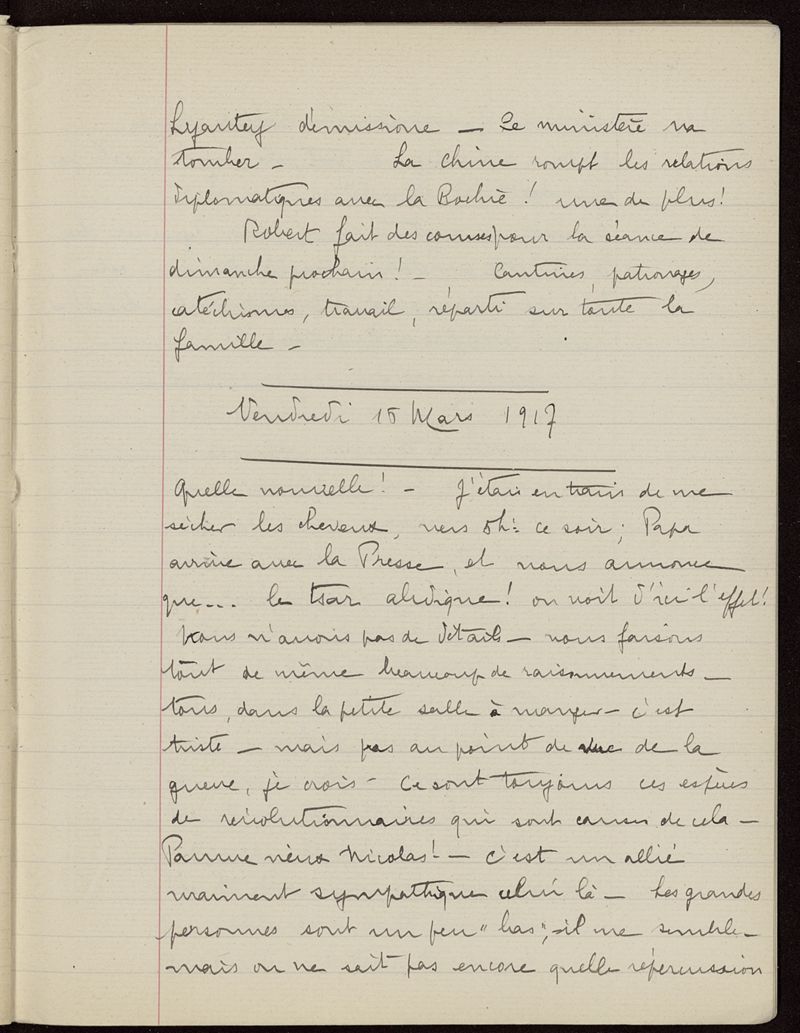 Lyautey démissione — Le ministère va
tomber — La Chine rompt les relations
diplomatiques avec la Bochie ! une de plus !
Robert fait des courses pour la séance de
dimanche prochain ! — Cantines, patronages,
catéchismes, travail, réparti sur toute la
famille —
Vendredi 15 Mars 1917
Quelle nouvelle ! — J'étais en train de me
sécher les cheveux, vers 5h: ce soir ; Papa
arrive avec la Presse, et nous annonce
que... le tsar abdique ! on voit d'ici l'effet !
Nous n'avons pas de détails — nous faisons
tout de même beaucoup de raisonnements —
tous, dans la petite salle à manger — c'est
triste — mais pas au point de vue de la
guerre, je crois — Ce sont toujours ces espèces
de révolutionnaires qui sont causes de cela —
Pauvre vieux Nicolas ! — C'est un allié
vraiment sympathique celui là — Les grandes
personnes sont un peu "bas", — il me semble —
mais on ne sait pas encore quelle répercussion